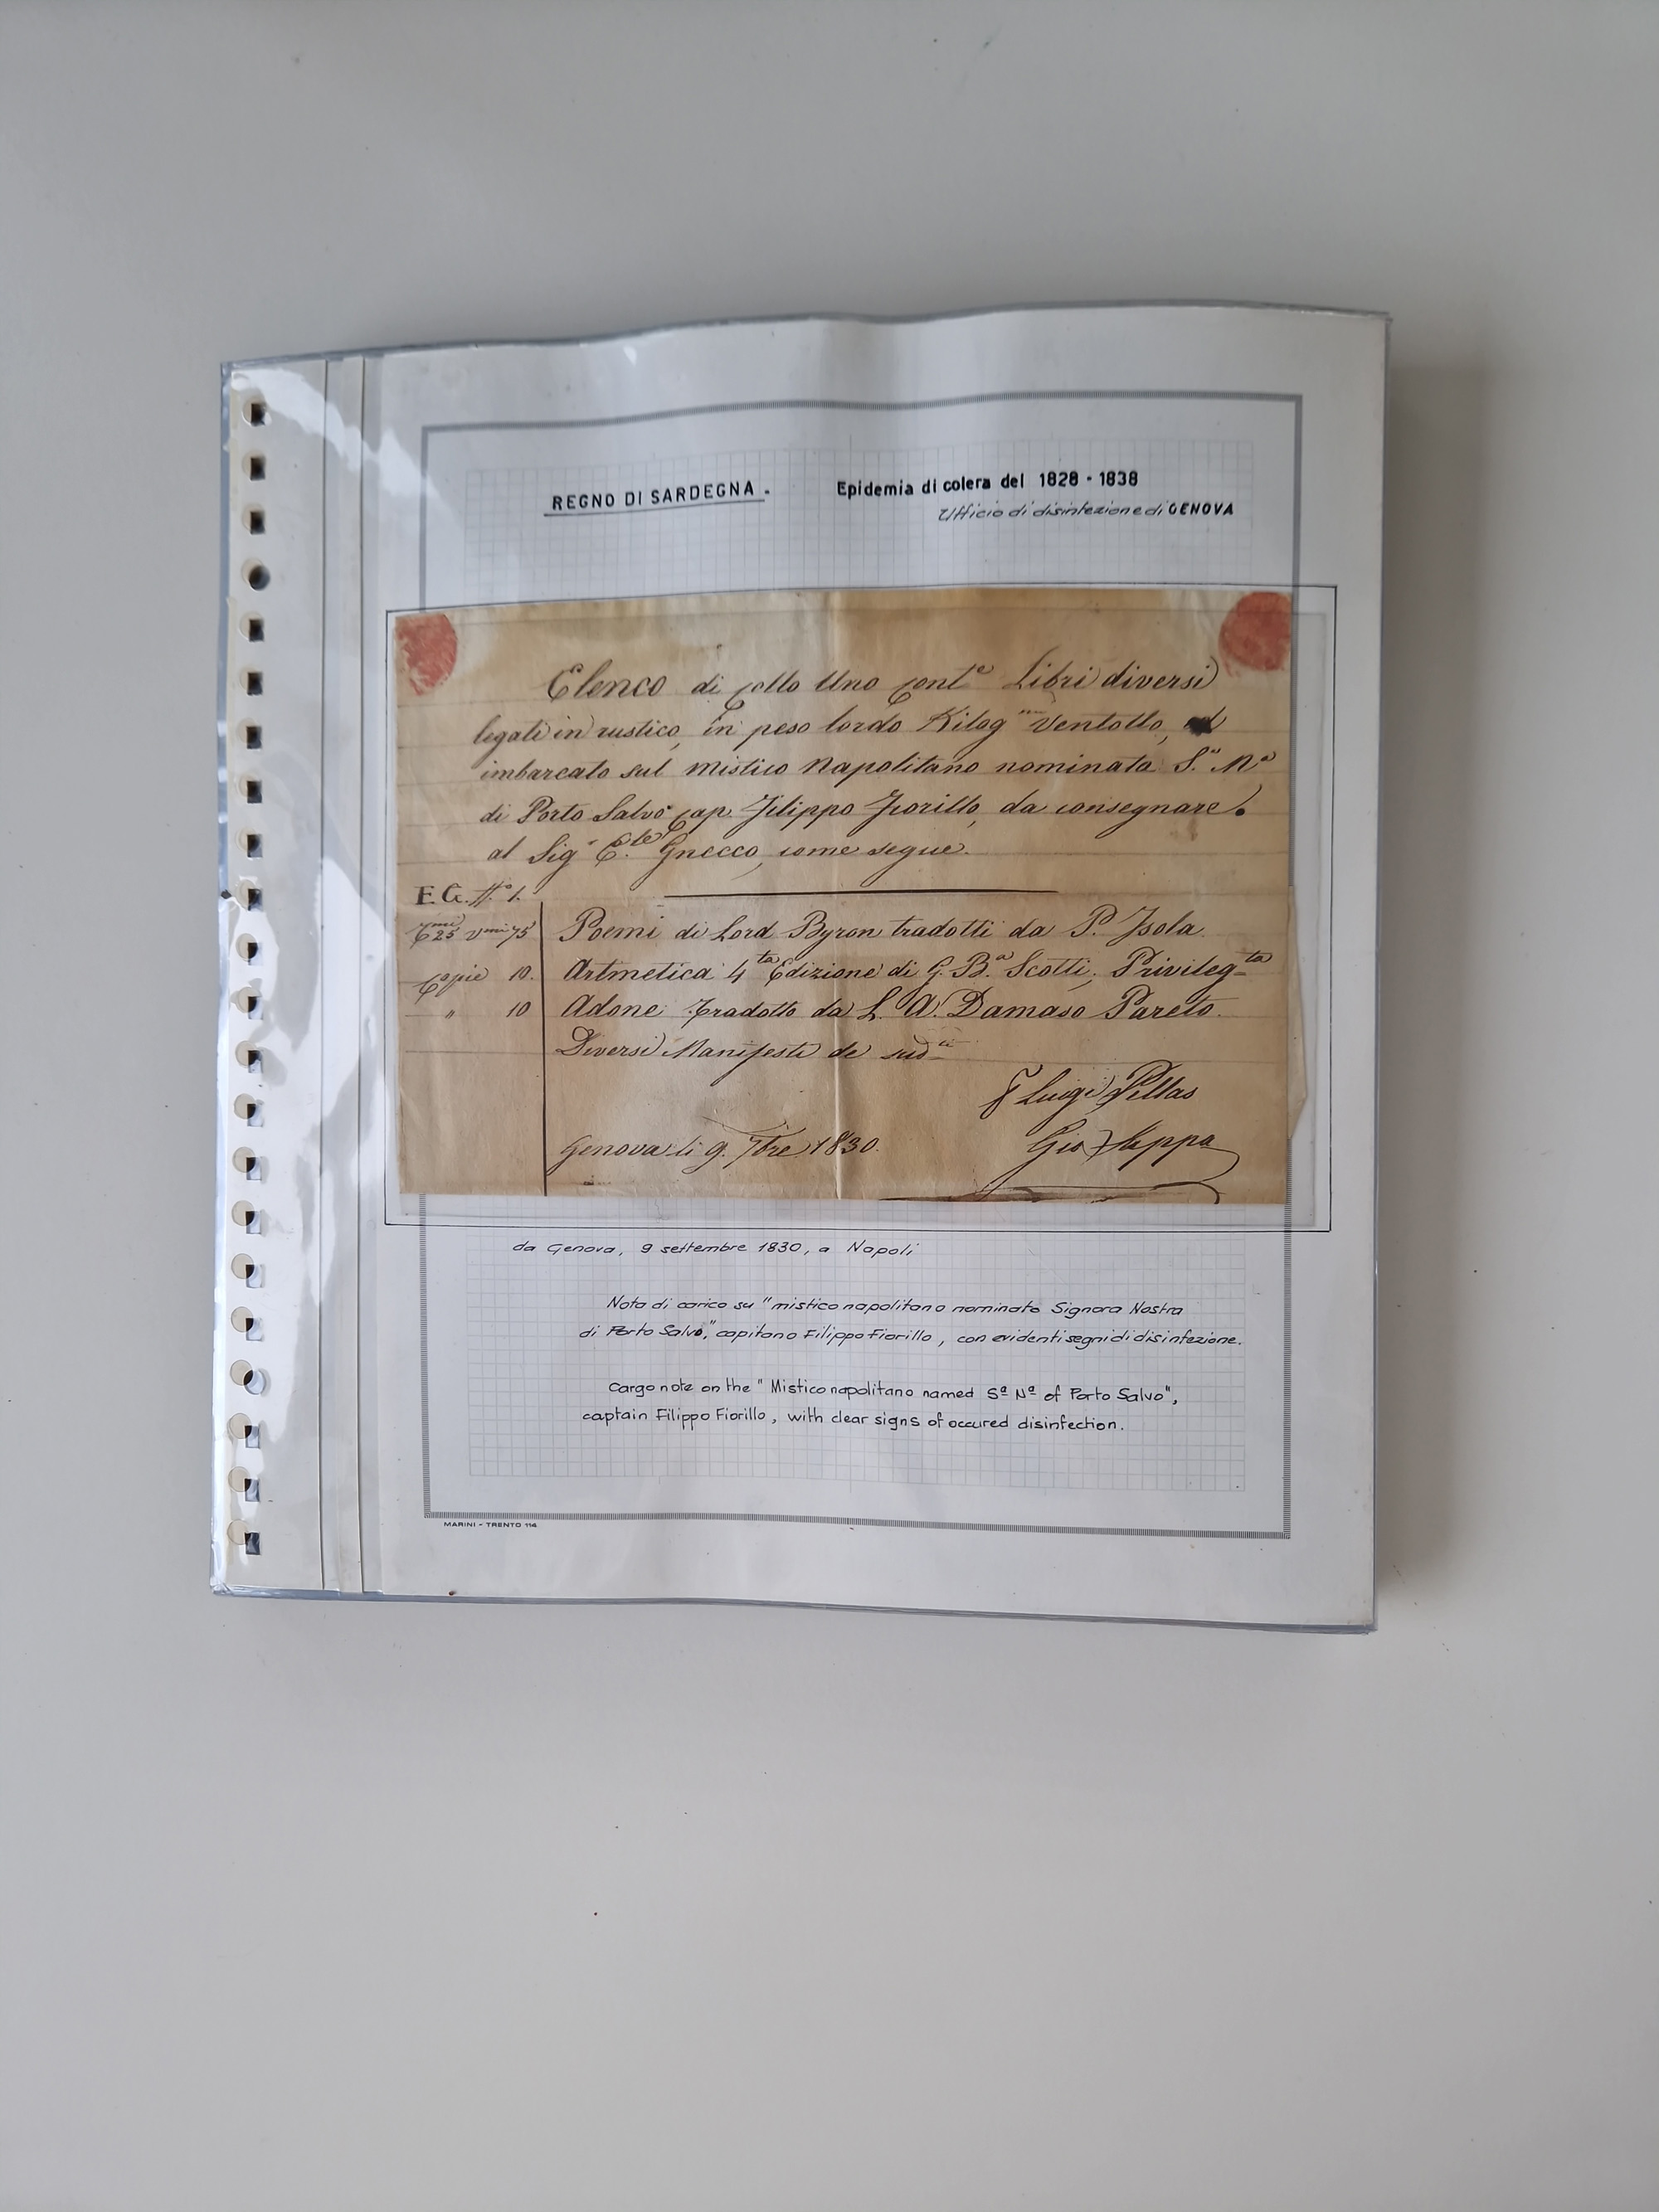 REGNO DI SARDEGNA.
Epidemia di colera del 1828 - 1838
Ufficio di disinfezione di GENOVA
Elenco di Collo Uno Cont.e Libri diversi
legati in rustico, in peso lordo Kilog.mi Ventotto,
imbarcato sul Mistico Napolitano nominato S.a N.a
di Porto Salvo Cap. Filippo Fiorillo, da consegnare
al Sig.r E.te Gnecco, come segue.
E.G. N.o 1.
25 75 Poemi di Lord Byron tradotti da P. Isola.
Copie 10. Artmetica 4ta Edizione di G. B.a Scotti, Privileg.ta
" 10 Adone Tradotto da L. A. Damaso Pareto.
Diversi Manifesti de sud.ti
Luigi Pellas
Genova li 9. 7bre 1830.
Gio
da Genova, 9 settembre 1830, a Napoli
Nota di carico su "mistico napolitano nominato Signora Nostra
di Porto Salvo," capitano Filippo Fiorillo, con evidenti segni di disinfezione.
Cargo note on the "Mistico napolitano named Sª Nª of Porto Salvo",
captain Filippo Fiorillo, with clear signs of occured disinfection.
MARINI - TRENTO 114